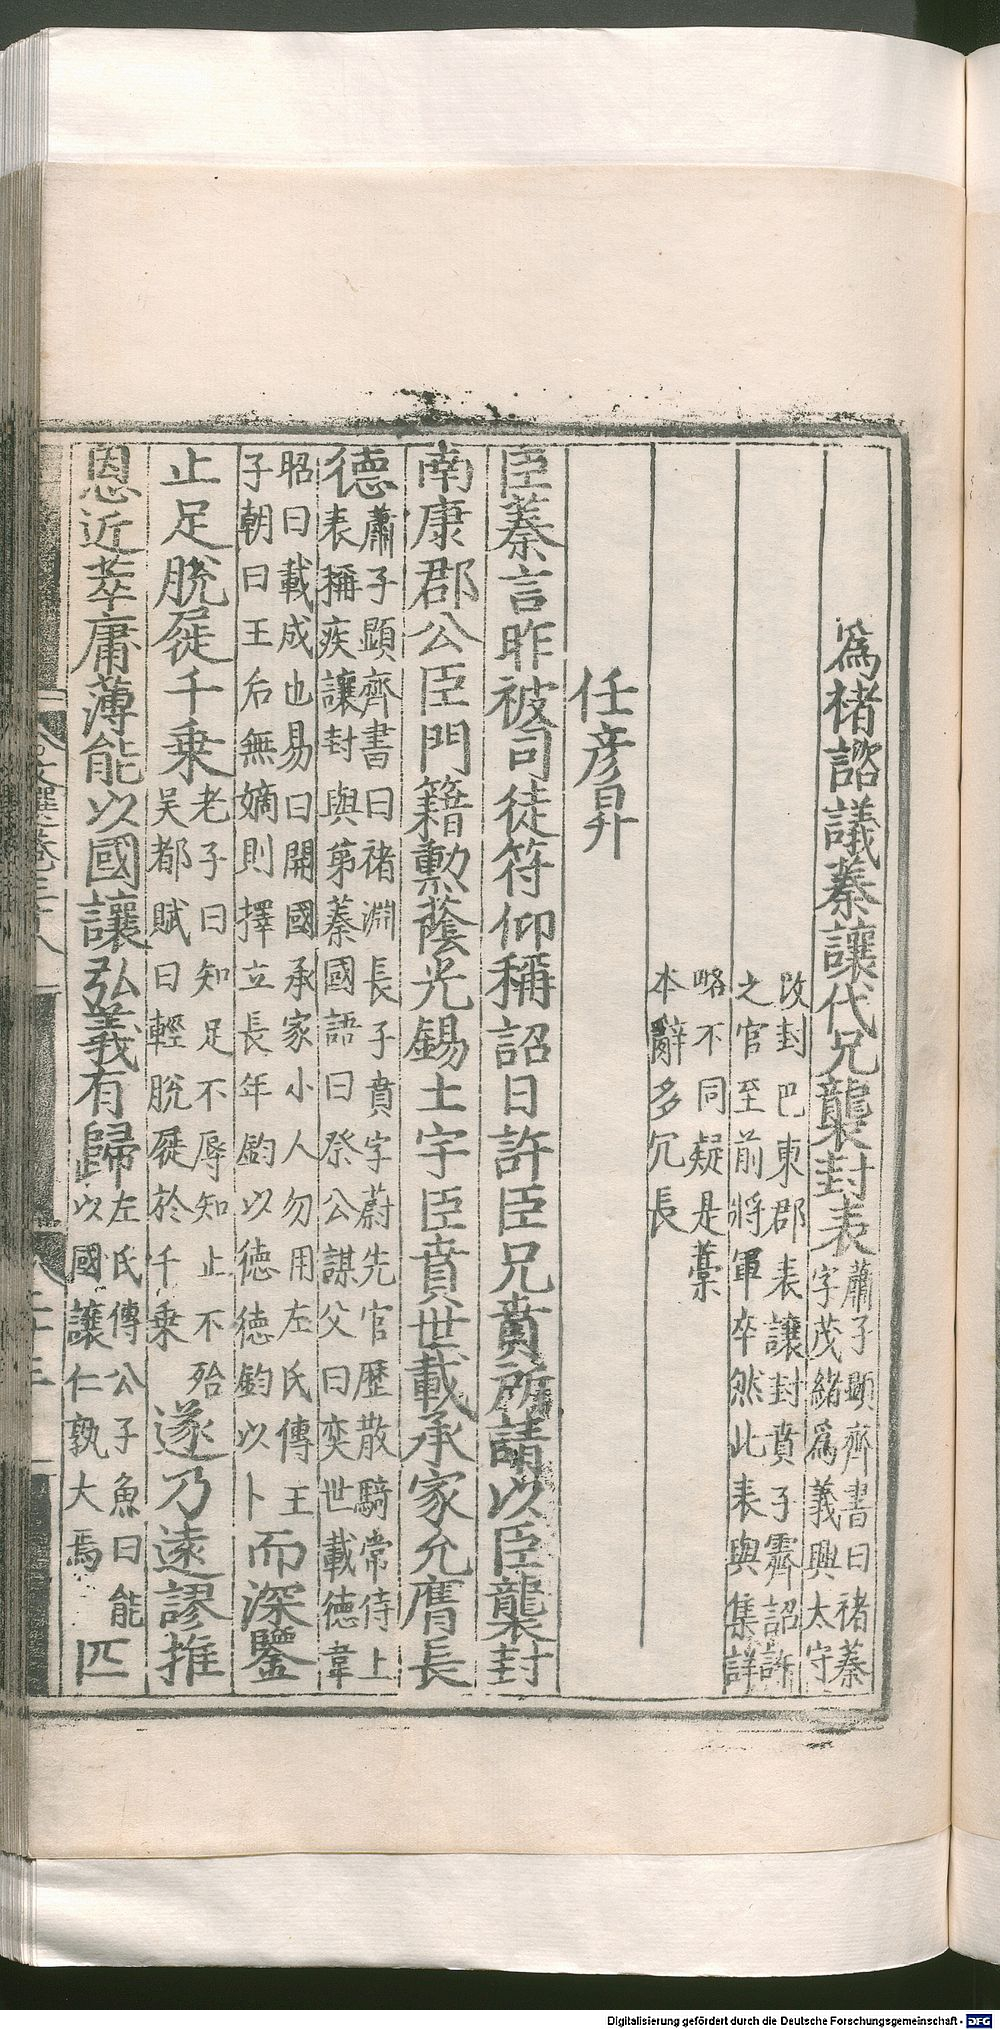 爲褚諮議蓁讓代兄襲封表蕭子顯齊書曰褚蓁字茂緒爲義興太守
改封巴東郡表讓封賁子霽詔許之官至前將軍卒然此表與集詳
略不同疑是藁本辭多冗長
任彦昇
臣蓁言昨被司徒符仰稱詔曰許臣兄賁所請以臣襲封
南康郡公臣門籍勳蔭光錫土宇臣賁世載承家允膺長
德蕭子顯齊書曰褚淵長子賁字蔚先官歷散騎常侍上表稱疾讓封與弟蓁國語曰祭公謀父曰奕世載德韋
昭曰載成也易曰開國承家小人勿用左氏傳王子朝曰王后無嫡則擇立長年鈞以德德鈞以卜而深鑒
止足脫屣千乘老子曰知足不辱知止不殆吳都賦曰輕脫屣於千乘遂乃遠謬推
恩近萃庸薄能以國讓弘義有歸左氏傳公子魚曰能以國讓仁孰大焉匹
Digitalisierung gefördert durch die Deutsche Forschungsgemeinschaft - DFG